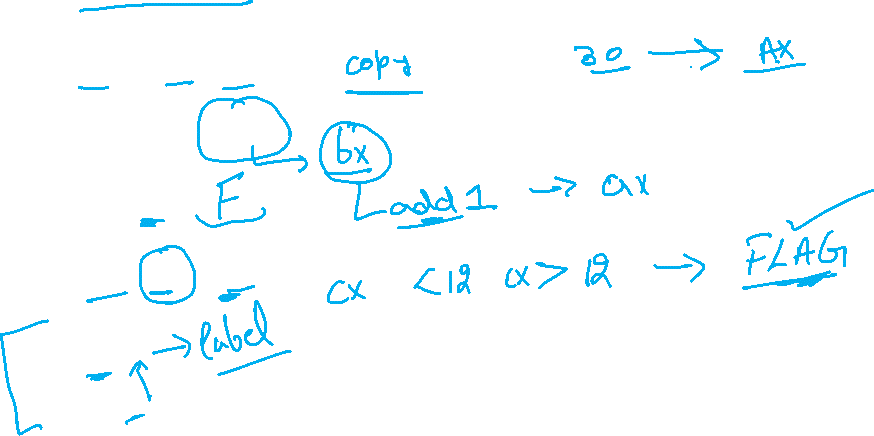 copy 30 → AX
bx
F add 1 → ax
cx <12 cx > 12 → FLAG
→ label